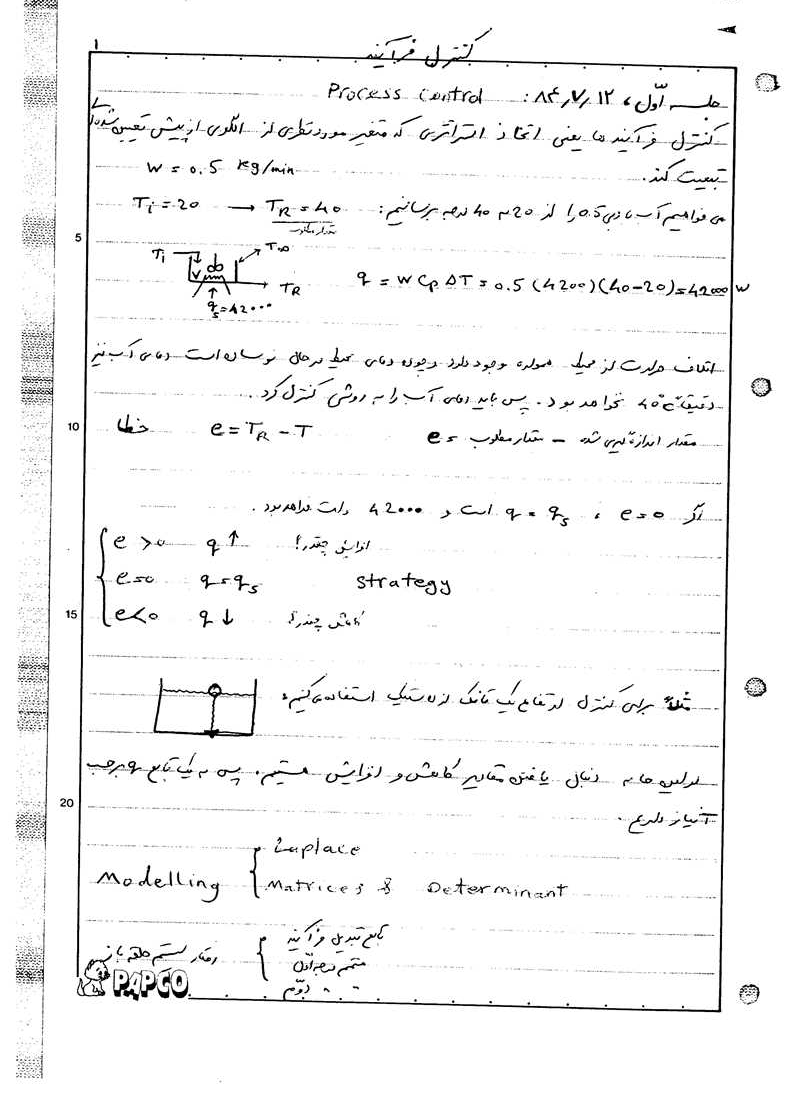 کنترل فرآیند
1
جلسه اوّل، ۸۴/۷/۱۲ : Process control
کنترل فرآیندها یعنی اتخاذ استراتژی که متغیر مورد نظری از الگوی از پیش تعیین شده‌ای
تبعیت کند.
W = 0.5 kg/min
می خواهیم آب با دبی 0.5 را از 20 به 40 درجه برسانیم: Ti = 20 → TR = 40
مقدار مطلوب
5
Ti T∞
TR
qs = 42000
q = W Cp ΔT = 0.5 (4200)(40-20) = 42000 W
اتلاف حرارت از محیط همواره وجود دارد و چون دمای محیط در حال نوسان است دمای آب نیز
دقیقاً 40°C نخواهد بود. پس باید دمای آب را به روشی کنترل کرد.
10
مقدار اندازه گیری شده - مقدار مطلوب = e
e = TR - T خطا
اگر e = 0 ، q = qs است و 42000 وات خواهد بود.
e > 0 q ↑ افزایش چقدر؟!
e = 0 q = qs strategy
15
e < 0 q ↓ کاهش چقدر؟!
مثلاً برای کنترل ارتفاع یک تانک از استیک استفاده می کنیم:
در این جا به دنبال یافتن مقادیر کاهش و افزایش هستیم. پس به یک تابع q برحسب
20
آن نیاز داریم.
Modelling
Laplace
Matrices & Determinant
رفتار سیستم حلقه باز
تابع تبدیل فرآیند
سیستم درجه اوّل
" " دوّم
PAPCO